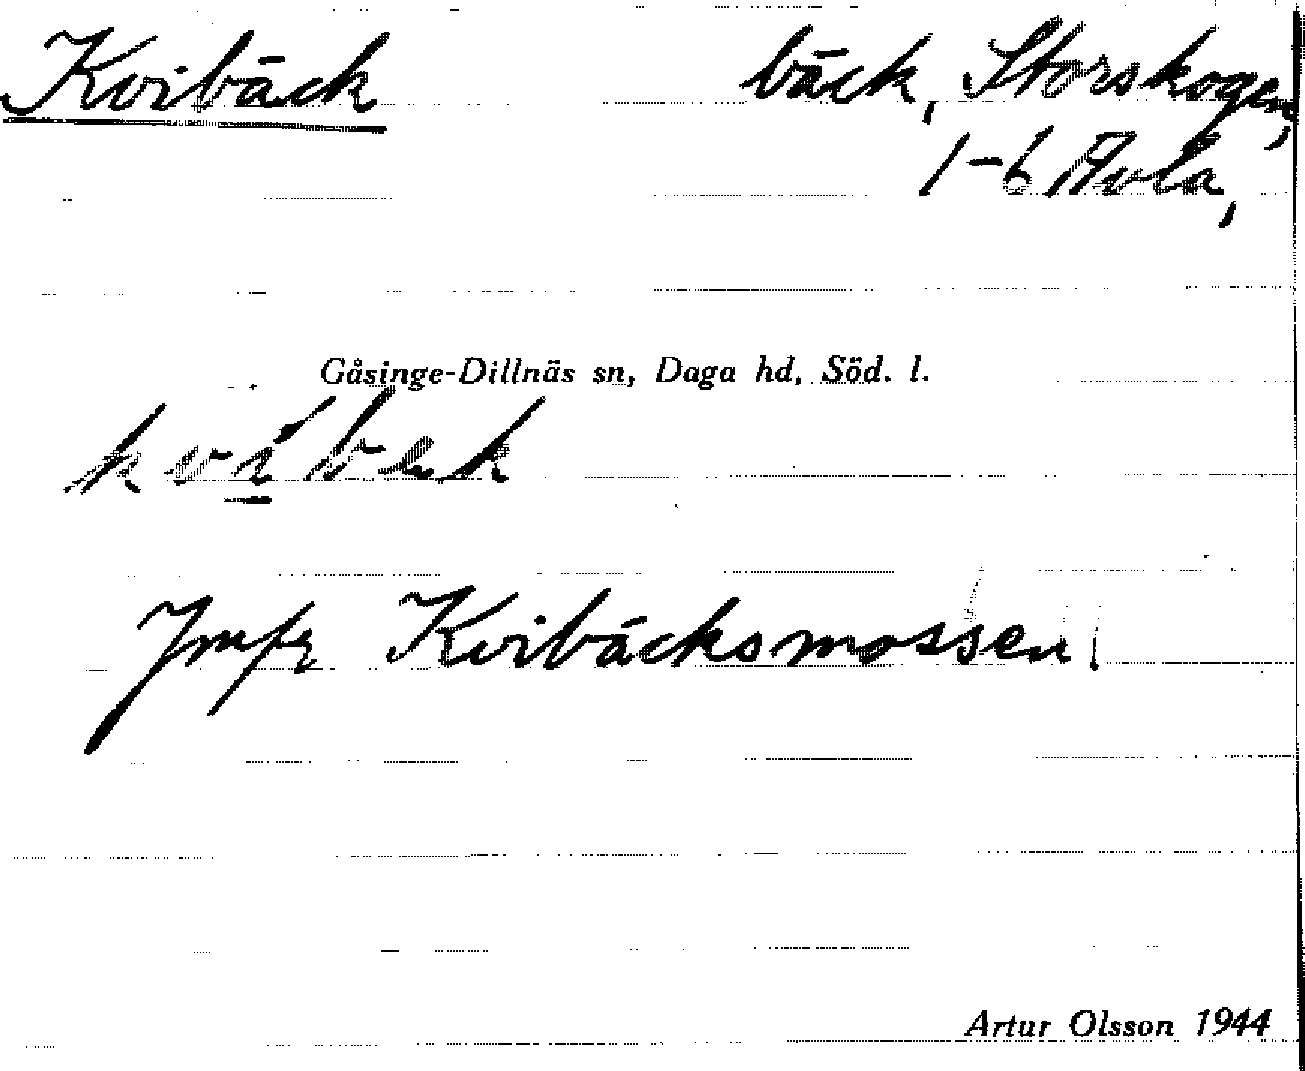 Kvibäck bäck, Storskogen,
1-6 Avla,
Gåsinge-Dillnäs sn, Daga hd, Söd. l.
kvibek
Jmfr Kvibäcksmossen!
Artur Olsson 1944